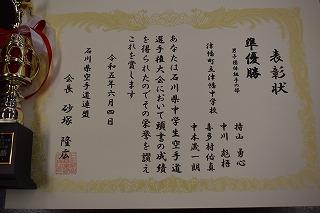 表彰状
準優勝
男子団体組手の部
津幡町立津幡中学校
持山 勇心
中川 彪梧
喜多村佑真
中本蔵一朗
あなたは石川県中学生空手道
選手権大会において頭書の成績
を得られたのでその栄誉を讃え
これを賞します
令和五年六月四日
石川県空手道連盟
会長 砂塚 隆広